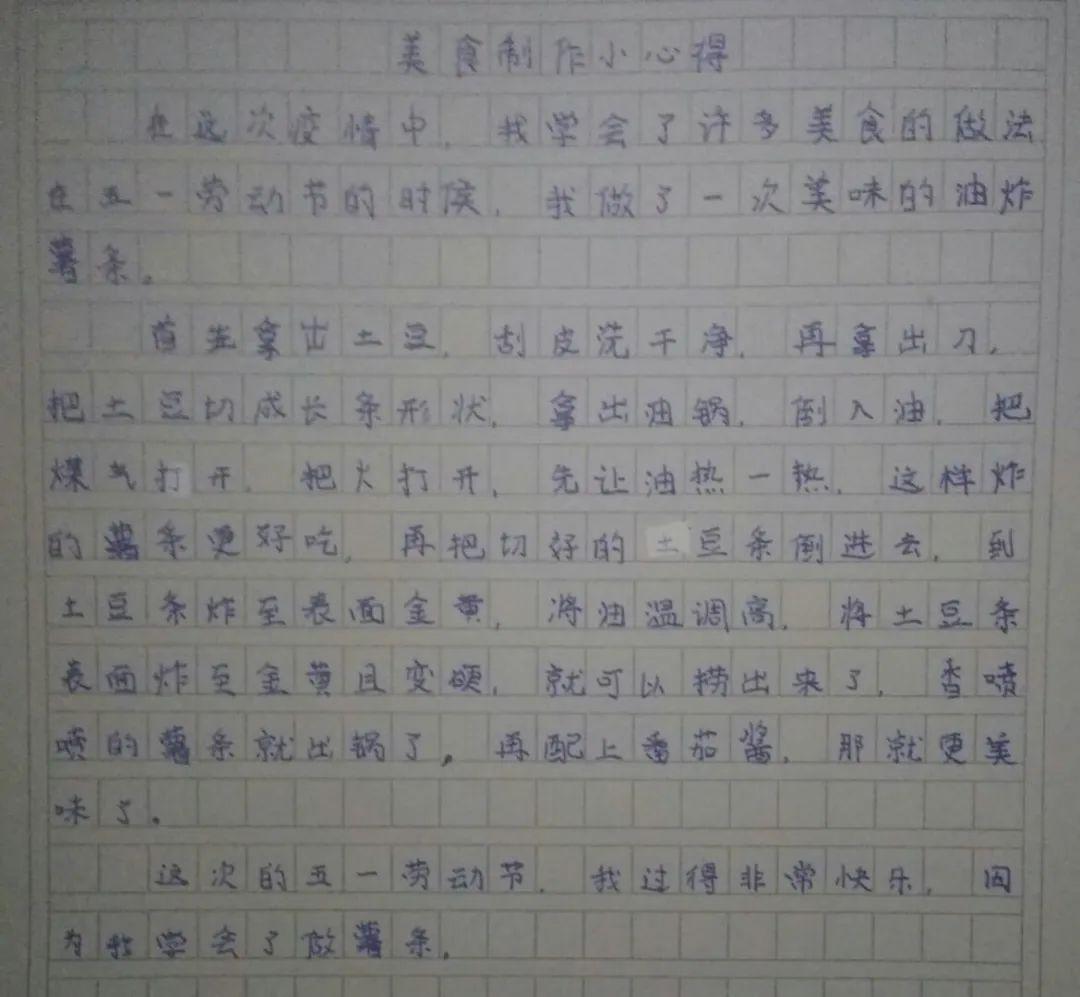 美食制作小心得
在这次疫情中，我学会了许多美食的做法
在五一劳动节的时候，我做了一次美味的油炸
薯条。
首先拿出土豆，刮皮洗干净，再拿出刀，
把土豆切成长条形状，拿出油锅，倒入油，把
煤气打开，把火打开，先让油热一热，这样炸
的薯条更好吃，再把切好的土豆条倒进去，到
土豆条炸至表面金黄，将油温调高，将土豆条
表面炸至金黄且变硬，就可以捞出来了，香喷
喷的薯条就出锅了。再配上番茄酱，那就更美
味了。
这次的五一劳动节，我过得非常快乐，因
为我学会了做薯条。